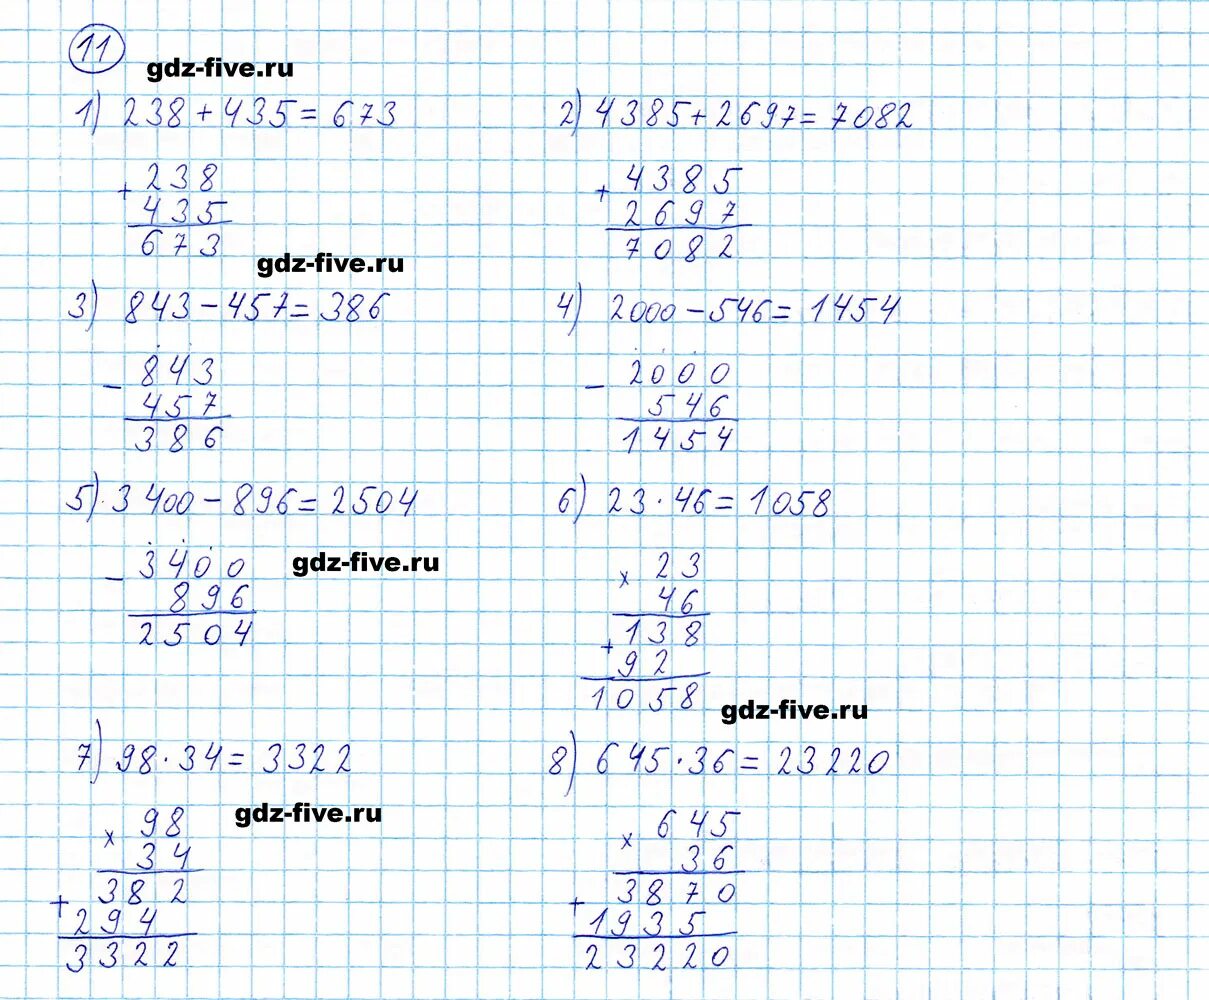 11
gdz-five.ru
1) 238 + 435 = 673
+ 238
435
673
2) 4385 + 2697 = 7082
+ 4385
2697
7082
gdz-five.ru
3) 843 - 457 = 386
- 843
457
386
4) 2000 - 546 = 1454
- 2000
546
1454
5) 3400 - 896 = 2504
- 3400
896
2504
gdz-five.ru
6) 23 · 46 = 1058
x 23
46
+ 138
92
1058
gdz-five.ru
7) 98 · 34 = 3322
x 98
34
+ 382
294
3322
gdz-five.ru
8) 645 · 36 = 23220
x 645
36
+ 3870
1935
23220